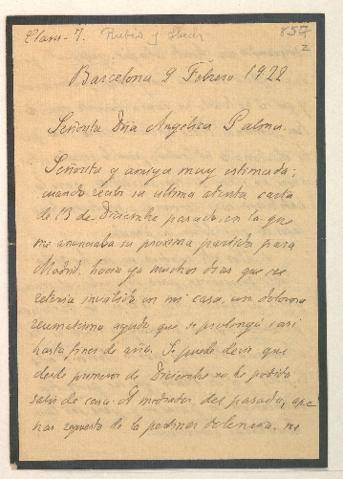 Claro-7. Rubió y Lluch 857
2
Barcelona 9 Febrero 1922
Señorita Dña Angélica Palma.
Señorita y amiga muy estimada:
cuando recibí su última atenta carta
de 13 de Diciembre pasado, en la que
me anunciaba su próxima partida para
Madrid, hacía ya muchos días que me
retenía inválido en mi casa, un doloroso
reumatismo agudo, que se prolongó casi
hasta fines de año. Se puede decir que
desde primeros de Diciembre no he podido
salir de casa. A mediados del pasado, ape
nas repuesto de la pertinaz dolencia, me